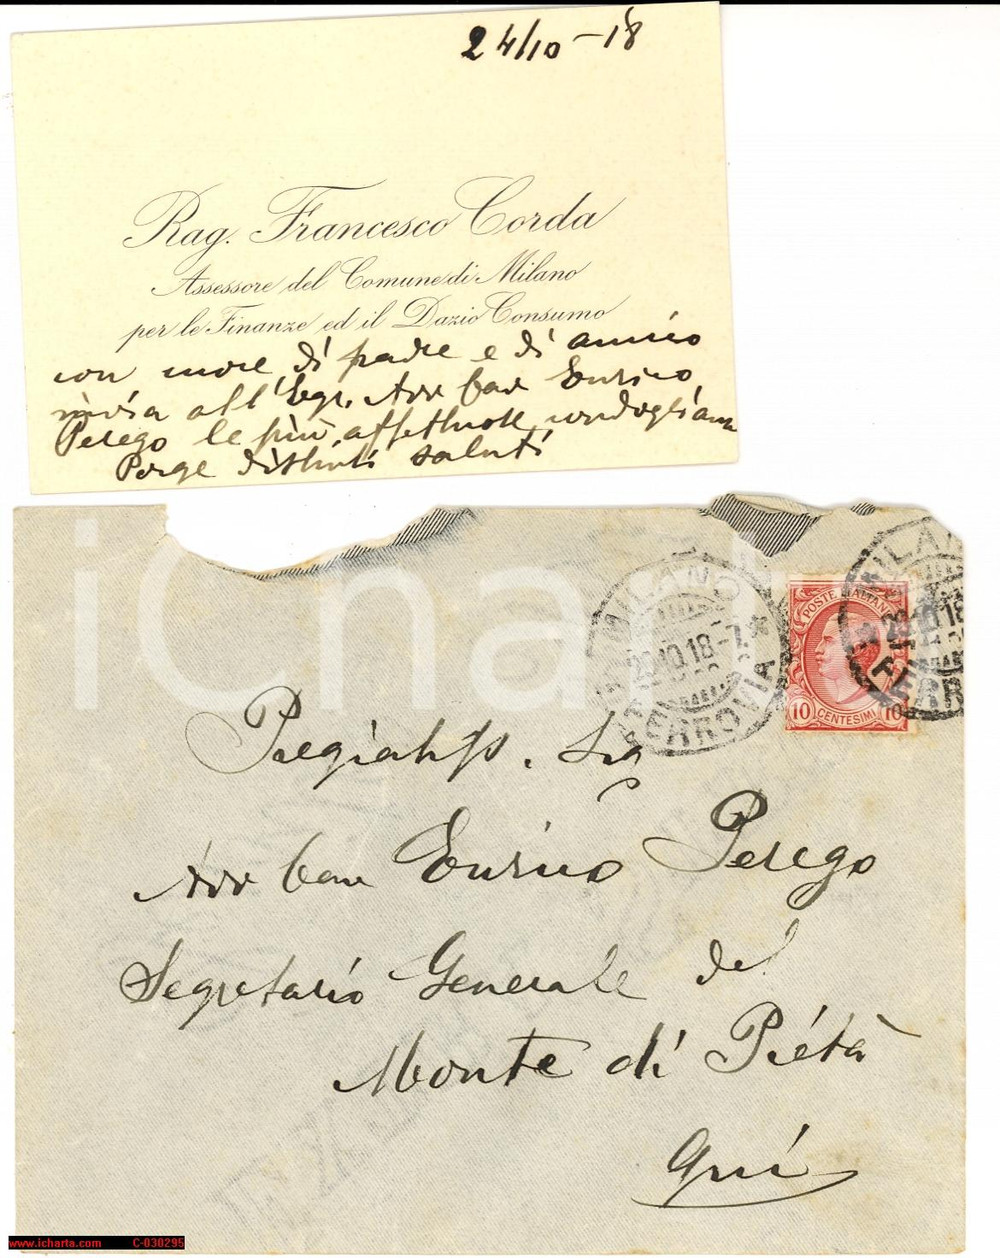 24/10-18
Rag. Francesco Corda
Assessore del Comune di Milano
per le Finanze ed il Dazio Consumo
con cuore di padre e di amico
invia all'Egr. Avv Cav Enrico
Perego le più affettuose condoglianze
Porge distinti saluti
iCharta
MILANO
20.10.18-7
FERROVIA
POSTE ITALIANE
10 CENTESIMI 10
MILANO
10.18
FERROVIA
Pregiatiss. Sig
Avv Cav Enrico Perego
Segretario Generale del
Monte di Pietà
Qui
www.icharta.com C-030295